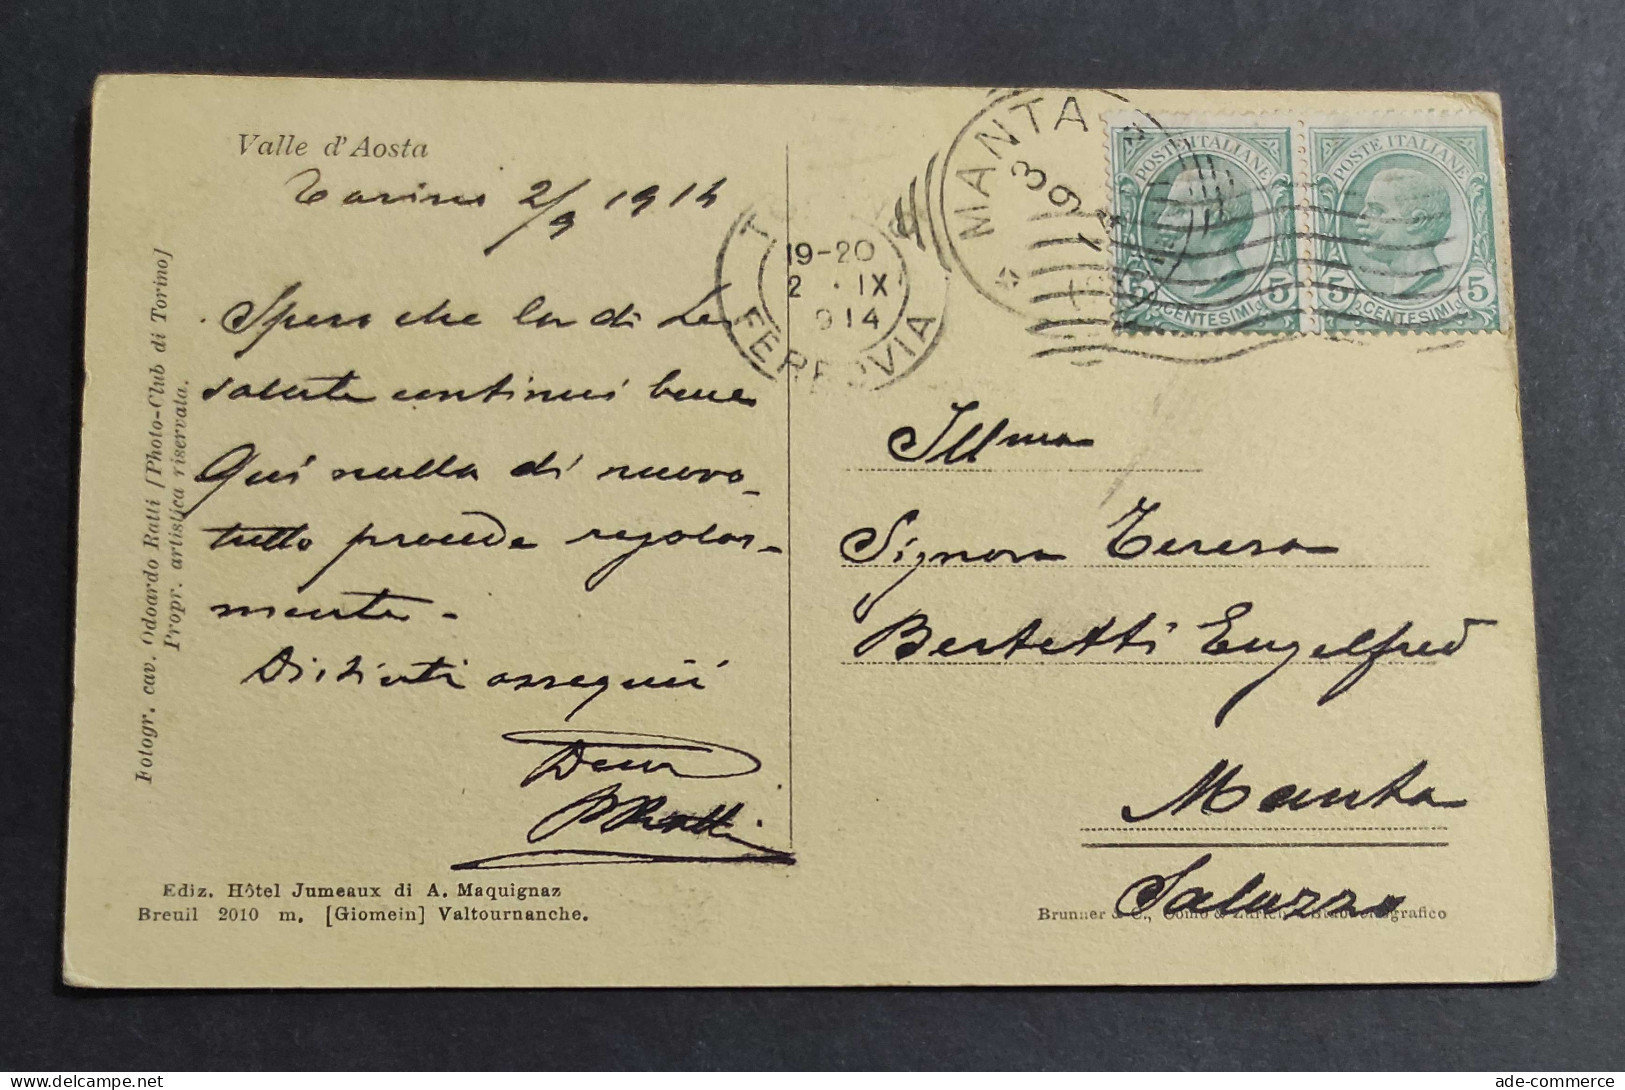 Valle d'Aosta
Torino 2/9 1914
Spero che la di Lei
salute continui bene
Qui nulla di nuovo_
tutto procede regolar_
mente_
Distinti ossequii
Ratti
Fotogr. cav. Odoardo Ratti [Photo-Club di Torino]
Propr. artistica riservata.
Ediz. Hôtel Jumeaux di A. Maquignaz
Breuil 2010 m. [Giomein] Valtournanche.
19-20
2 . IX
914
FERROVIA
MANTA
3 9 14
POSTE ITALIANE
5 CENTESIMI 5
POSTE ITALIANE
5 CENTESIMI 5
Illma
Signora Teresa
Bertetti Engelfred
Manta
Saluzzo
Brunner & C., Como & Zürich
ade-commerce